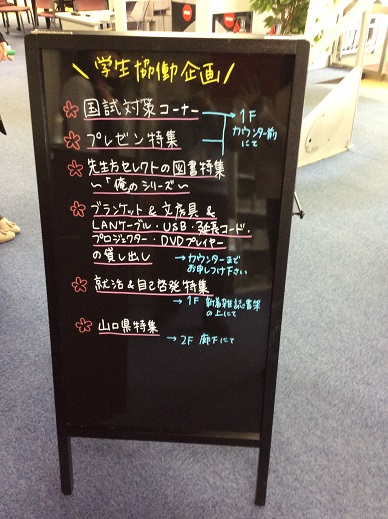 \ 学生協働企画 /
国試対策コーナー → 1F
プレゼン特集 カウンター前
にて
先生方セレクトの図書特集
～「俺のシリーズ」～
ブランケット & 文房具 &
LANケーブル・USB・延長コード・
プロジェクター・DVDプレイヤー
の貸し出し → カウンターまで
お申しつけ下さい
就活&自己啓発特集
→ 1F 新着雑誌書架
の上にて
山口県特集
→ 2F 廊下にて